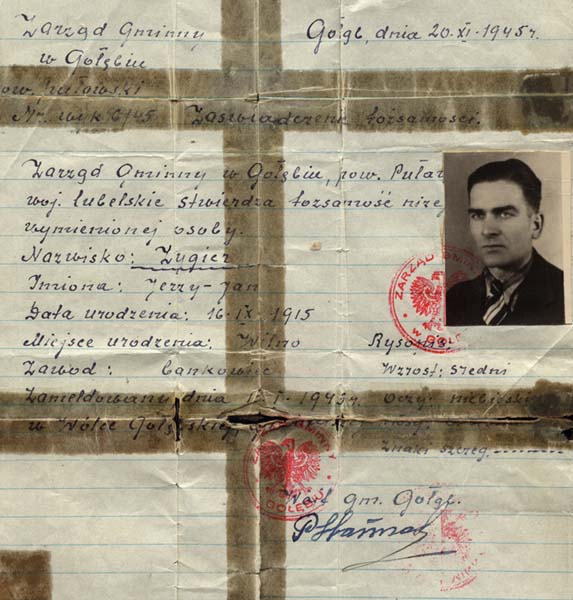 Zarząd Gminny
w Gołębiu
pow. Puławski
Nr. w.k 6/45
Gołąb, dnia 20-XI-1945r.
Zaświadczenie tożsamości.
Zarząd Gminny w Gołębiu, pow. Puław
woj. lubelskie stwierdza tożsamość niżej
wymienionej osoby.
Nazwisko: Żugier
Imiona: Jerzy-Jan
Data urodzenia: 16-IX-1915
Miejsce urodzenia: Wilno
Zawód: bankowiec
Zameldowany dnia 1945r.
w Wólce Gołębskiej,
Rysopis:
Wzrost: średni
Oczy: niebieskie
Znaki szczeg.
ZARZĄD GMINNY
W GOŁĘBIU
ZARZĄD GMINNY
W GOŁĘBIU
Wójt gm. Gołąb.